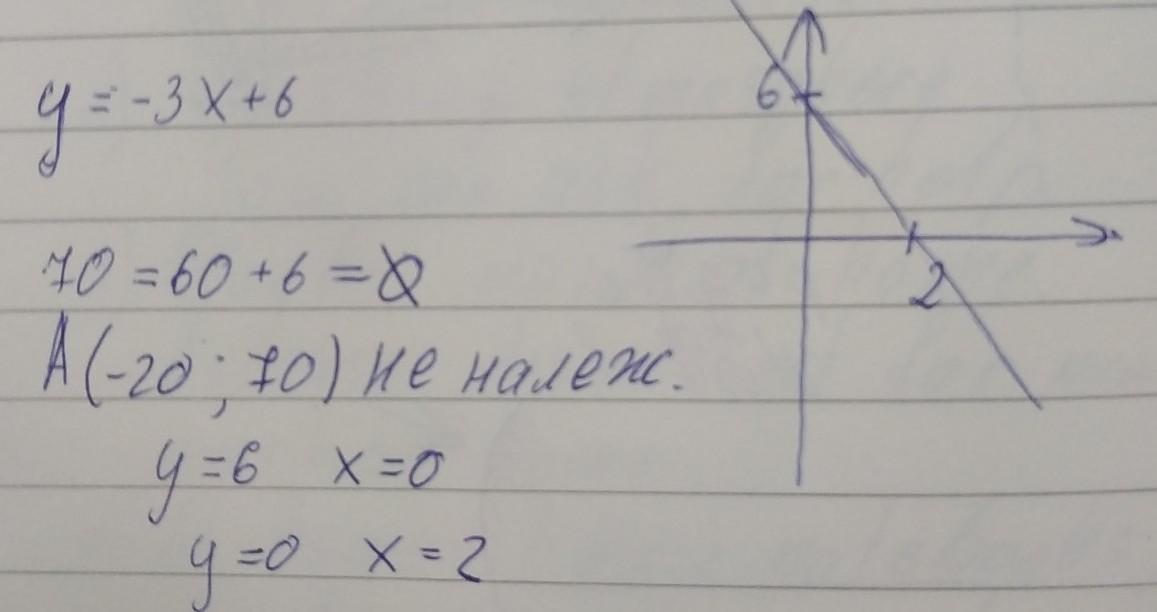 y = -3x+6
6
70 = 60 + 6 = Ø
2
A(-20; 70) не належ.
y = 6 x = 0
y = 0 x = 2